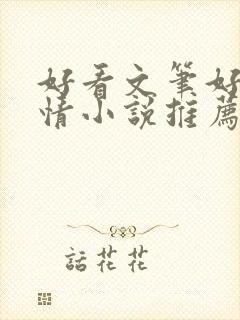 好看文筆好
情小說推薦
話花花